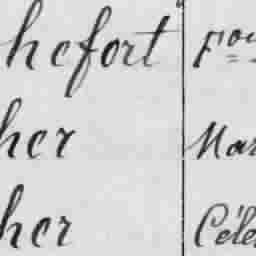 hefort Fou
her Mar
her Céle